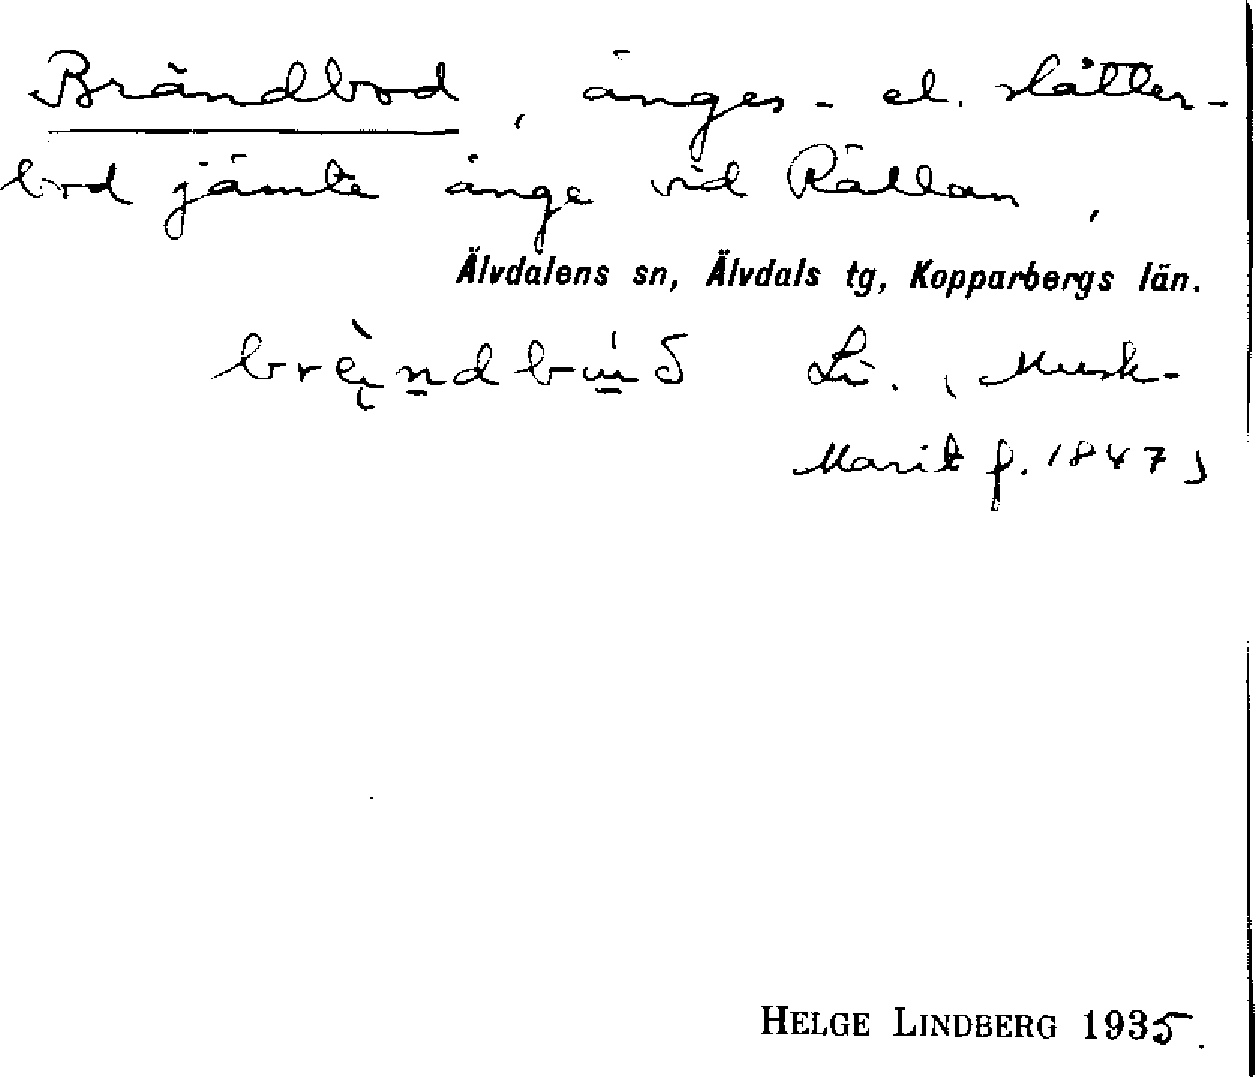 Brändbod, änges- el. slåtter-
bod jämte änge vid Rällan,
Älvdalens sn, Älvdals tg, Kopparbergs län.
Musk-
Marit f. 1847)
HELGE LINDBERG 1935.